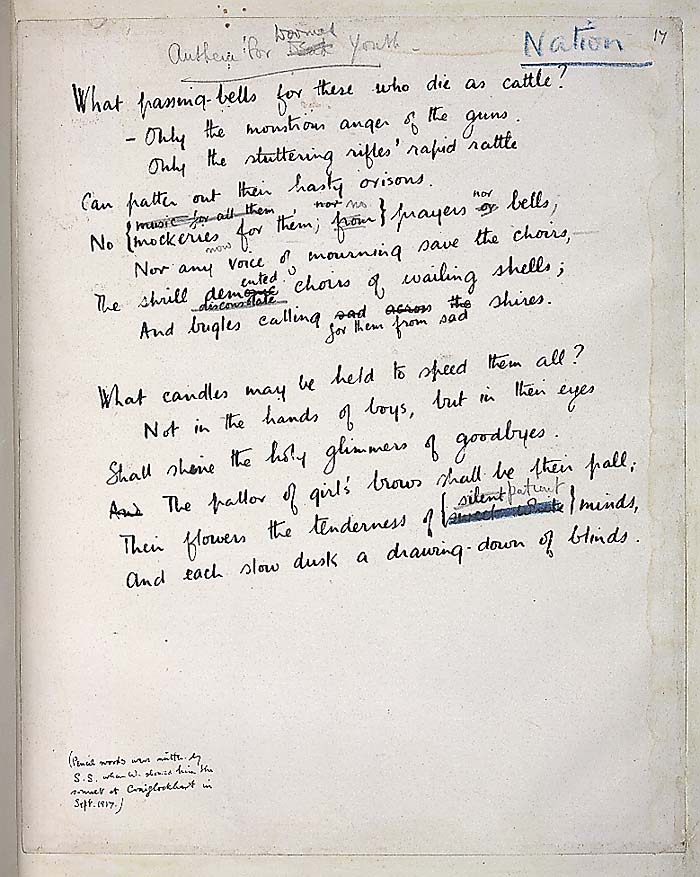 Doomed
Anthem for Dead Youth -
Nation
17
What passing-bells for these who die as cattle?
- Only the monstrous anger of the guns.
Only the stuttering rifles' rapid rattle
Can patter out their hasty orisons.
music for all them nor no nor
No { mockeries for them; from } prayers or bells,
now
Nor any voice of mourning save the choirs, -
ented
The shrill demonic choirs of wailing shells;
disconsolate
And bugles calling sad across the shires.
for them from sad
What candles may be held to speed them all?
Not in the hands of boys, but in their eyes
Shall shine the holy glimmers of goodbyes.
And The pallor of girl's brows shall be their pall;
silent patient
Their flowers the tenderness of { sweet white } minds,
And each slow dusk a drawing-down of blinds.
(Pencil words were written by
S.S. when W. showed him the
sonnet at Craiglockhart in
Sept. 1917.)